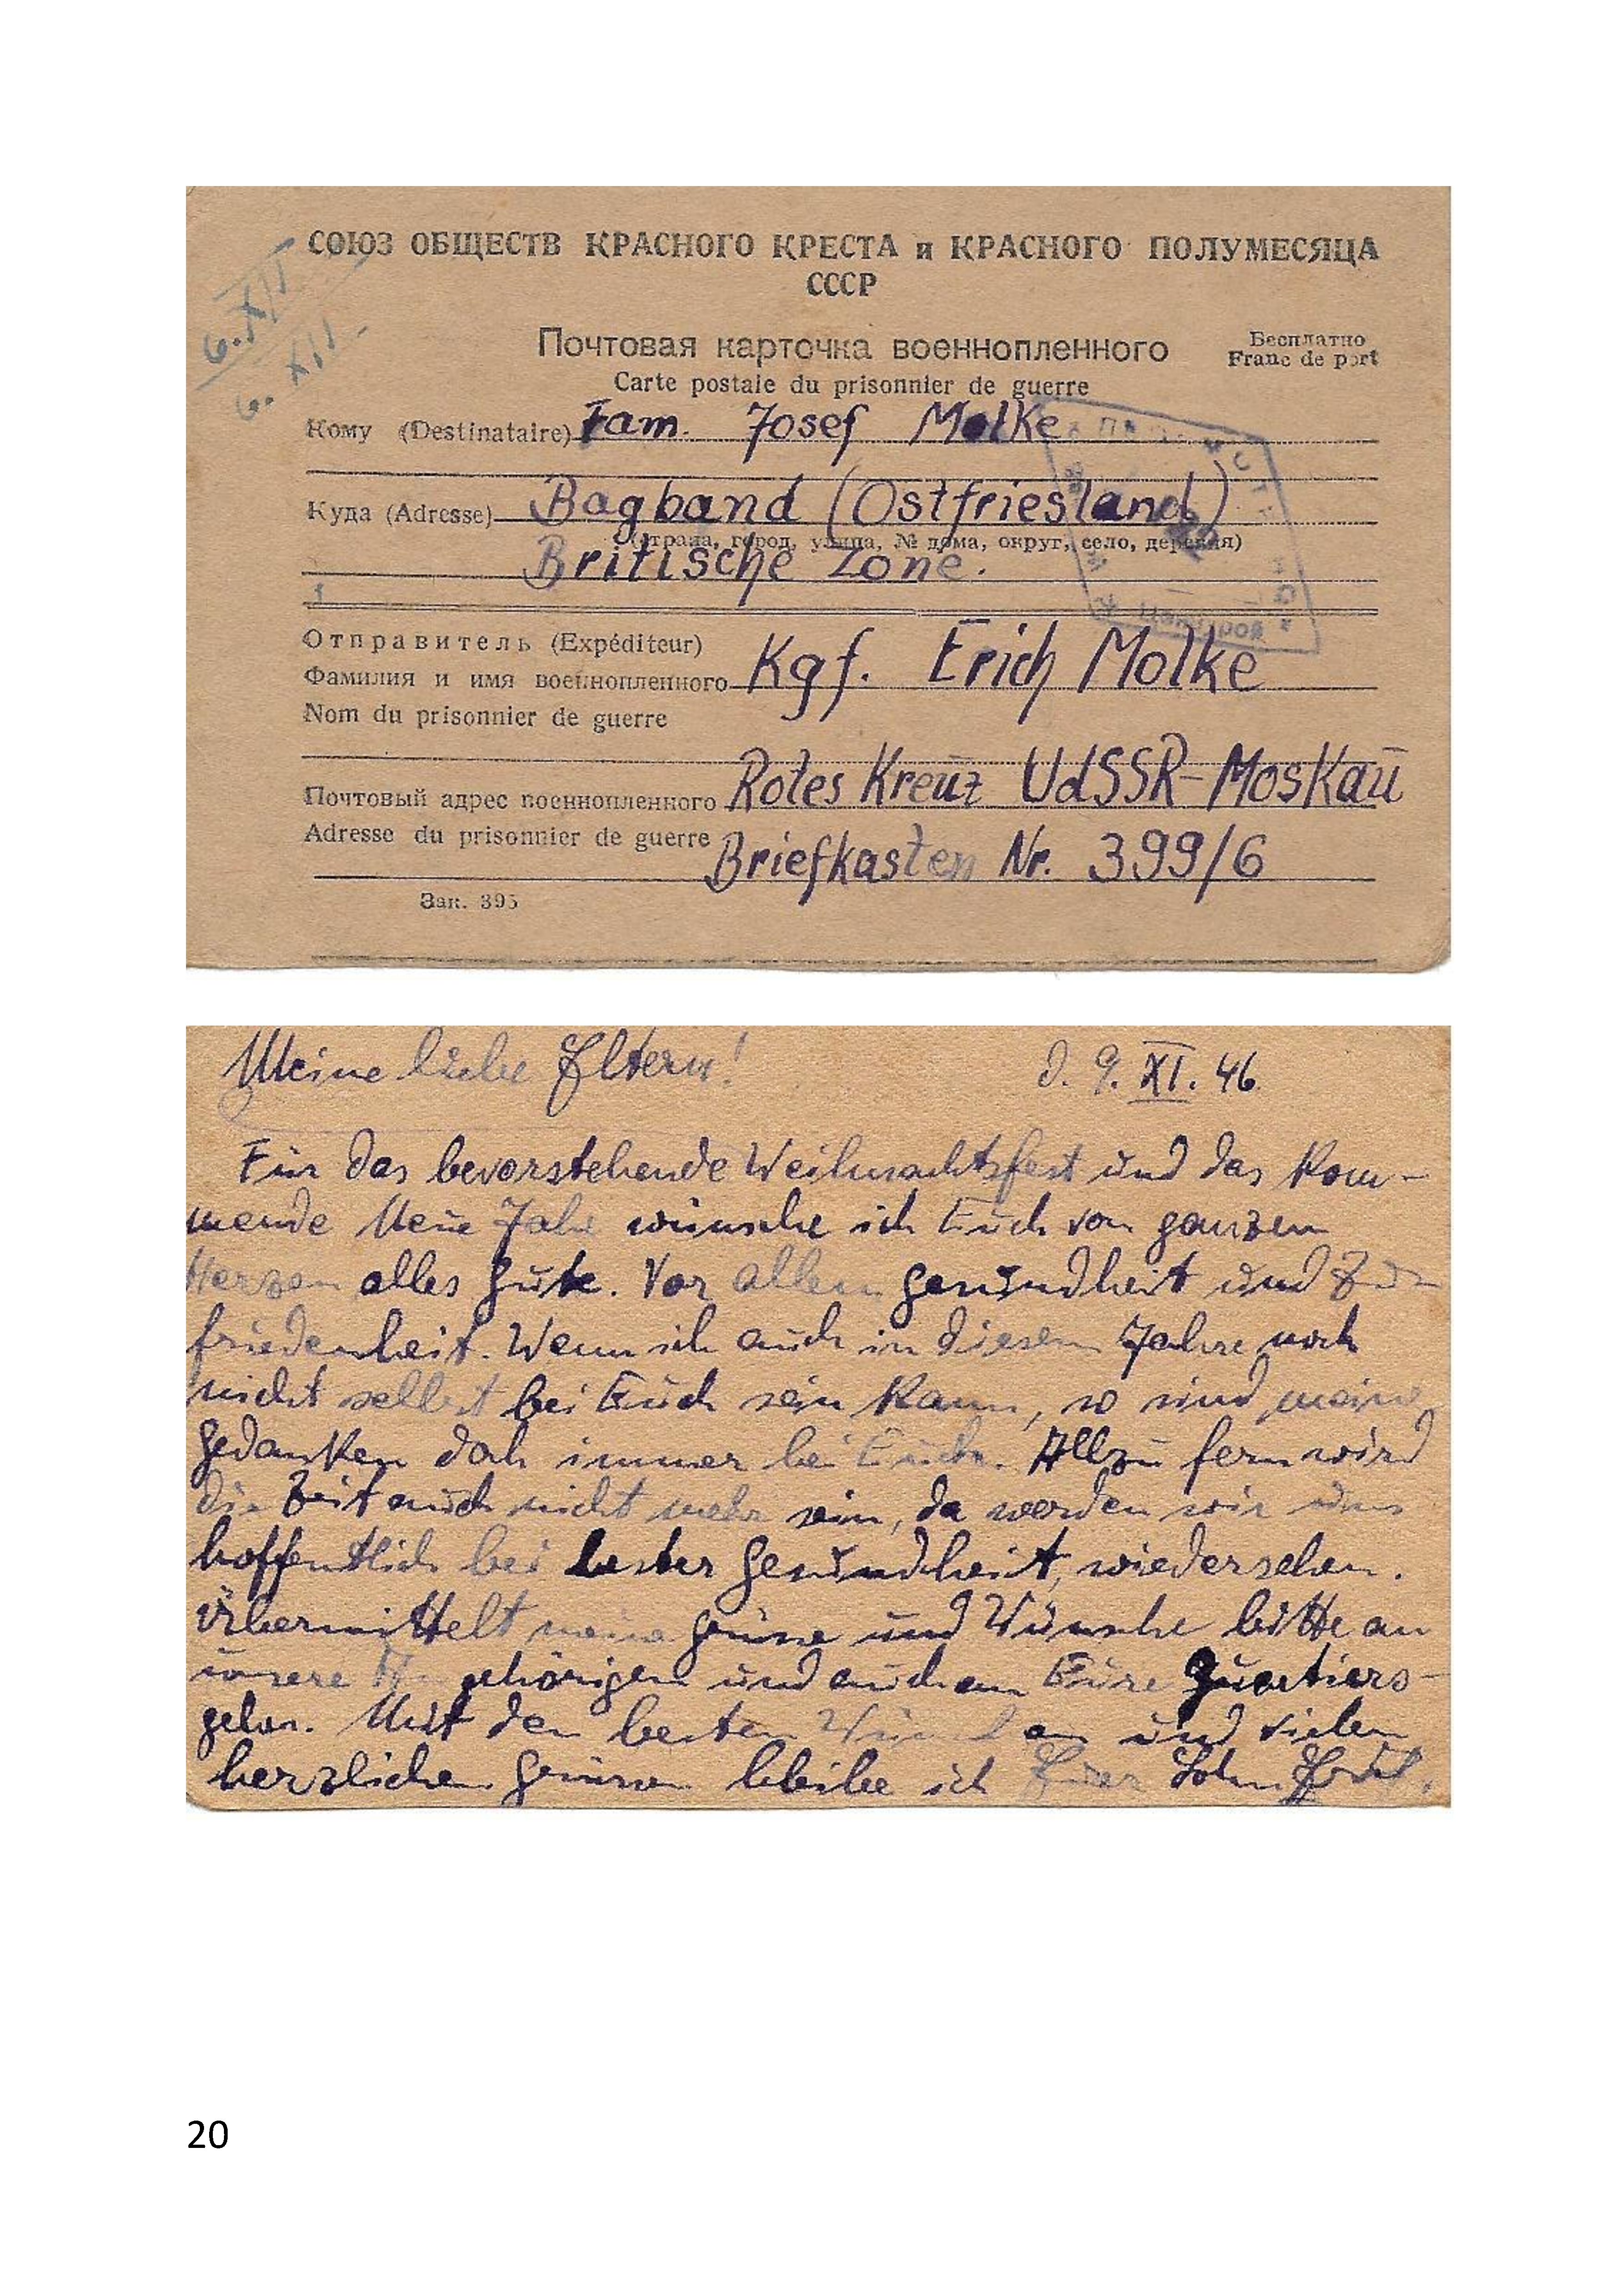 6.XII
6. XII.
СОЮЗ ОБЩЕСТВ КРАСНОГО КРЕСТА и КРАСНОГО ПОЛУМЕСЯЦА
СССР
Почтовая карточка военнопленного
Бесплатно
Franc de port
Carte postale du prisonnier de guerre
Кому (Destinataire) Fam. Josef Molke
Куда (Adresse) Bagband (Ostfriesland)
(страна, город, улица, № дома, округ, село, деревня)
Britische Zone.
Отправитель (Expéditeur)
Фамилия и имя военнопленного Kgf. Erich Molke
Nom du prisonnier de guerre
Почтовый адрес военнопленного Rotes Kreuz UdSSR-Moskau
Adresse du prisonnier de guerre Briefkasten Nr. 399/6
Зак. 395
Meine liebe Eltern! d. 9. XI. 46.
Für das bevorstehende Weihnachtsfest und das kom-
mende Neue Jahr wünsche ich Euch von ganzem
Herzen alles Gute. Vor allem Gesundheit und Zu-
friedenheit. Wenn ich auch in diesem Jahre noch
nicht selbst bei Euch sein kann, so sind meine
Gedanken doch immer bei Euch. Allzu fern wird
die Zeit auch nicht mehr sein, da werden wir uns
hoffentlich bei bester Gesundheit, wiedersehen.
Übermittelt meine Grüsse und Wünsche bitte an
unsere Angehörigen und auch an Eure Quartiers-
geber. Mit den besten Wünschen und vielen
herzlichen Grüssen bleibe ich Euer Sohn Erich.
20